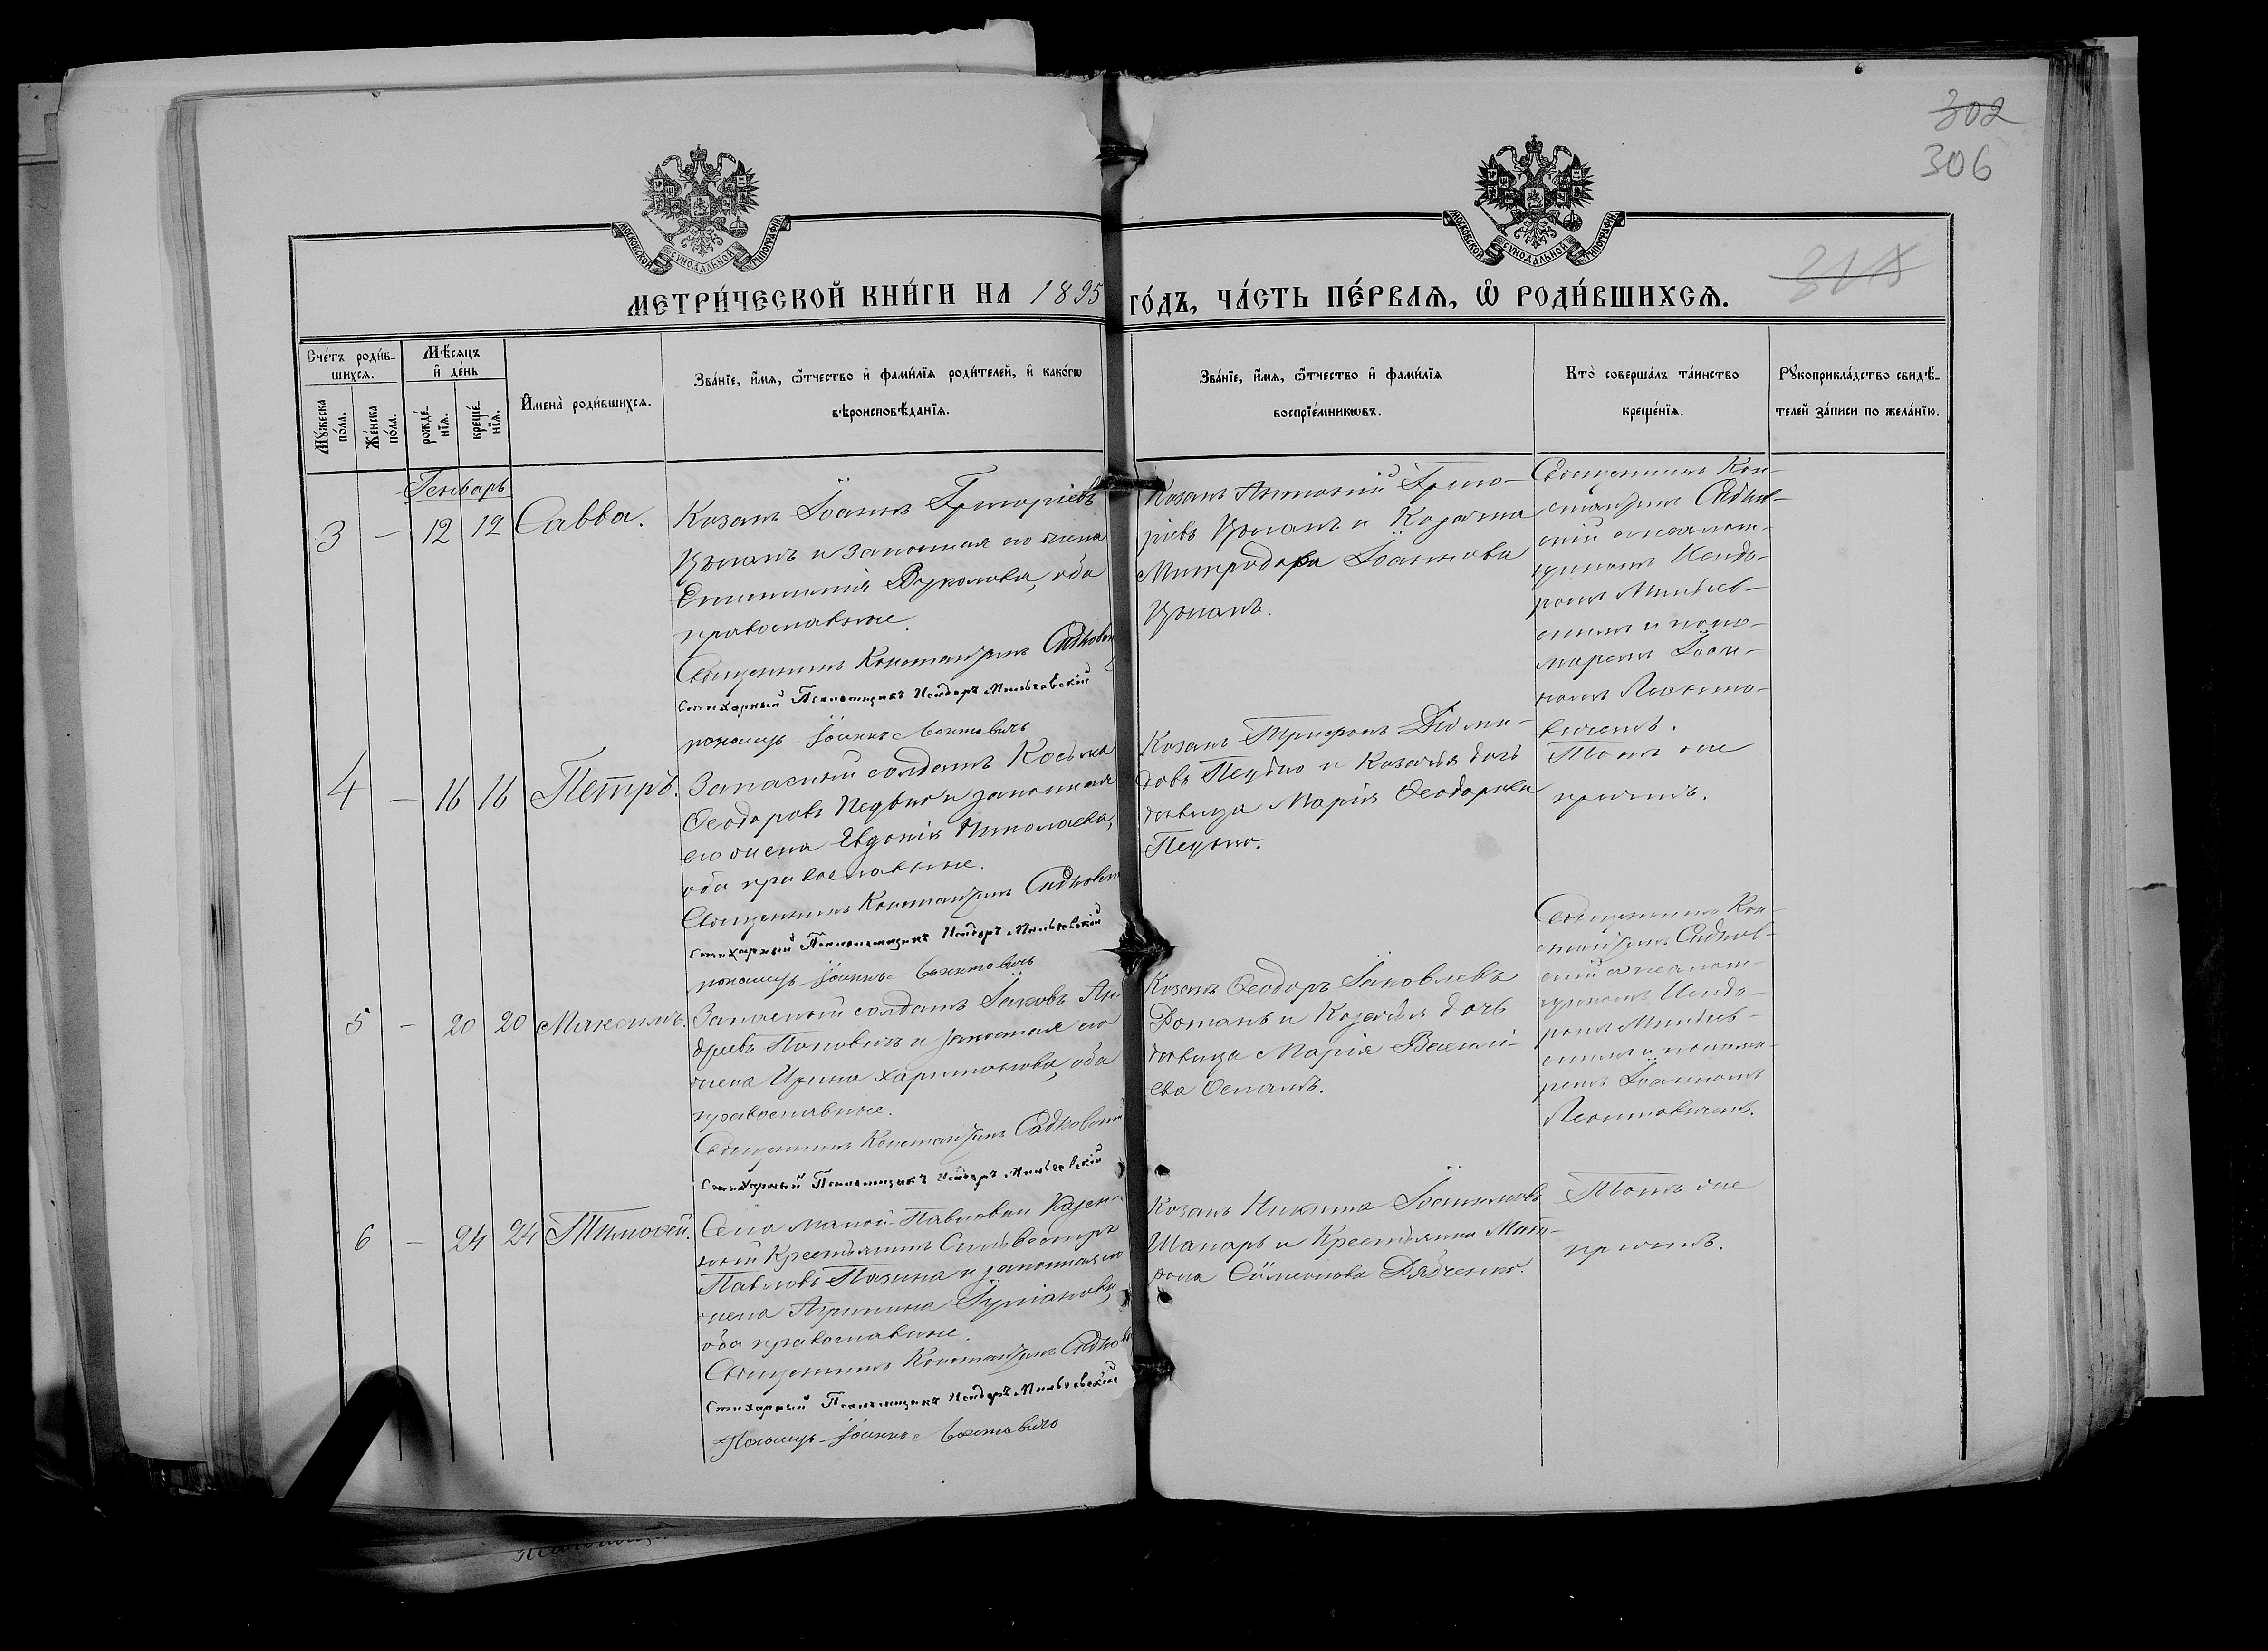 302
306
318
МОСКОВСКОЙ СѴНОДАЛЬНОЙ ТИПОГРАФІИ
МОСКОВСКОЙ СѴНОДАЛЬНОЙ ТИПОГРАФІИ
МЕТРИ́ЧЕСКОЙ КНИ́ГИ НА 1895 ГО́ДЪ, ЧА́СТЬ ПЕ́РВАѦ, Ѽ РОДИ́ВШИХСѦ.
Сче́тъ роди́в-
шихсѧ.
Мꙋ́жеска
по́ла.
Же́нска
по́ла.
Мѣ́сѧцъ
и҆ де́нь
рожде́-
нїѧ.
креще́-
нїѧ.
И҆мена̀ роди́вшихсѧ.
Зва́нїе, и҆́мѧ, ѻ҆́тчество и҆ фами́лїѧ роди́телей, и҆ како́гѡ
вѣроисповѣ́данїѧ.
Зва́нїе, и҆́мѧ, ѻ҆́тчество и҆ фами́лїѧ
воспрїе́мникѡвъ.
Кто̀ соверша́лъ та́инство
креще́нїѧ.
Рꙋкоприкла́дство свидѣ́-
телей за́писи по жела́нїю.
Генварь
3 — 12 12 Савва.
Козакъ Іоаннъ Григоріевъ
Цюпанъ и законная его жена
Епистимія Вуколова, оба
православные.
Священникъ Константинъ Садковскій
Стихарный Псаломщикъ Исидоръ Миньевскій
пономарь Іоаннъ Леонтовичъ
Козакъ Антоній Григо-
ріевъ Цюпанъ и Козачка
Митродора Іоаннова
Цюпанъ.
Священникъ Кон-
стантинъ Садков-
скій съ псалом-
щикомъ Исидо-
ромъ Миньев-
скимъ и поно-
маремъ Іоан-
номъ Леонто-
вичемъ.
4 — 16 16 Петръ.
Запасный солдатъ Косьма
Ѳеодоровъ Педько и законная
его жена Евдокія Николаева,
оба православные.
Священникъ Константинъ Садковскій
Стихарный Псаломщикъ Исидоръ Миньевскій
пономарь Іоаннъ Леонтовичъ
Козакъ Трифонъ Діоми-
довъ Педько и Козачья дочь
дѣвица Марія Ѳеодорова
Педько.
Тотъ же
причтъ.
5 — 20 20 Максимъ.
Запасный солдатъ Іаковъ Ан-
дреевъ Поповичъ и законная его
жена Ирина Харитонова, оба
православные.
Священникъ Константинъ Садковскій
Стихарный Псаломщикъ Исидоръ Миньевскій
Козакъ Ѳеодоръ Іаковлевъ
Романъ и Козачья дочь
дѣвица Марія Васили-
ева Осмакъ.
Священникъ Кон-
стантинъ Садков-
скій съ псалом-
щикомъ Исидо-
ромъ Миньев-
скимъ и понома-
ремъ Іоанномъ
Леонтовичемъ.
6 — 24 24 Тимоѳей.
Села Малой-Павловки Казен-
ный Крестьянинъ Сильвестръ
Павловъ и законная его
жена Агрипина Іуліанова,
оба православные.
Священникъ Константинъ Садковскій
Стихарный Псаломщикъ Исидоръ Миньевскій
Пономарь Іоаннъ Леонтовичъ
Козакъ Никита Іоакимовъ
Шапарь и Крестьянка Мат-
рона Симеонова Дядченко.
Тотъ же
причтъ.